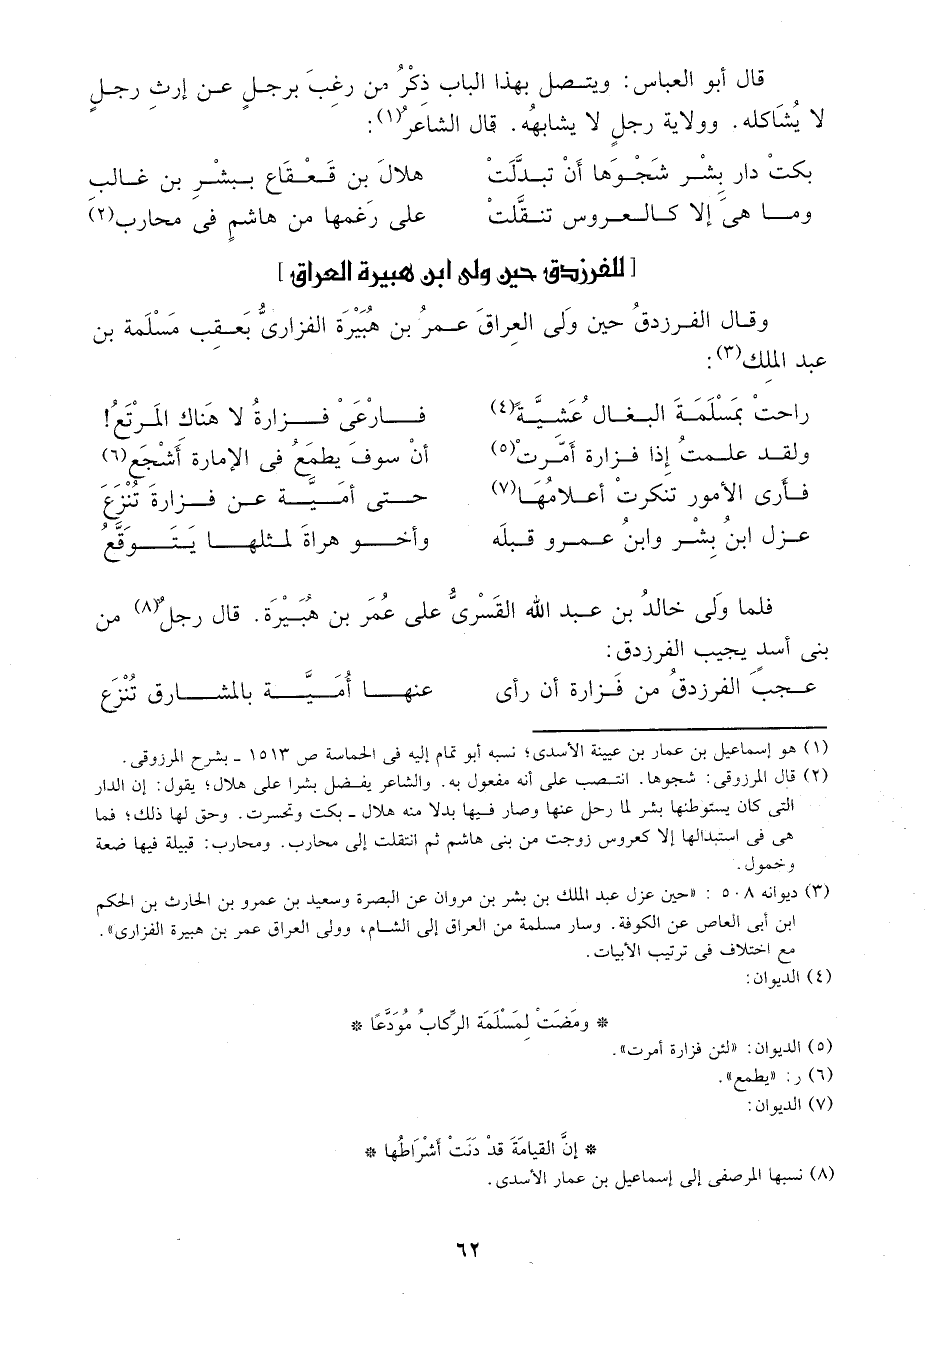 قال أبو العباس: ويتصل بهذا الباب ذكْرُ من رغبَ برجلٍ عن إرث رجلٍ
لا يُشَاكله. وولاية رجلٍ لا يشابهُه. قال الشاعرُ(١):
بكتْ دار بِشْرٍ شَجْوَها أنْ تبدَّلَتْ هلالَ بن قَعْقَاعٍ بِبشْرِ بن غالبِ
وما هىَ إلا كالعروسِ تنقَّلتْ على رَغْمِها من هاشمٍ فى محاربِ(٢)
[ للفرزدق حين ولى ابن هبيرة العراق ]
وقال الفرزدقُ حين ولَى العراقَ عمرُ بن هُبَيْرَة الفَزارىُّ بَعقِب مَسْلَمة بن
عبد الملكِ(٣):
راحتْ بمَسْلَمَةَ البغال عَشيَّةً(٤) فارْعَىْ فزارةُ لا هَناك المَرْتَعُ!
ولقد علمتُ إذا فزارة أُمِّرتْ(٥) أنْ سوفَ يطمَعُ فى الإمارة أشْجَع(٦)
فأرى الأمور تنكرتْ أعلامُهَا(٧) حتى أُمَيَّة عن فزارةَ تُنْزَعُ
عزل ابنُ بِشْر وابنُ عمرو قبلَه وأخو هراةَ لمثلها يَتَوقَّعُ
فلما ولَى خالدُ بن عبد الله القَسْرىُّ على عُمَر بن هُبَيْرَة. قال رجلٌ(٨) من
بنى أسدٍ يجيب الفرزدق:
عجبَ الفرزدقُ من فَزارة أن رأى عنها أُمَيَّة بالمشارق تُنْزَعُ
(١) هو إسماعيل بن عمار بن عيينة الأسدى؛ نسبه أبو تمام إليه فى الحماسة ص ١٥١٣ ـ بشرح المرزوقى.
(٢) قال المرزوقى: شجوها. انتصب على أنه مفعول به. والشاعر يفضل بشرا على هلال؛ يقول: إن الدار
التى كان يستوطنها بشر لما رحل عنها وصار فيها بدلا منه هلال ـ بكت وتحسرت. وحق لها ذلك؛ فما
هى فى استبدالها إلا كعروس زوجت من بنى هاشم ثم انتقلت إلى محارب. ومحارب: قبيلة فيها ضعة
وخمول.
(٣) ديوانه ٥٠٨ : «حين عزل عبد الملك بن بشر بن مروان عن البصرة وسعيد بن عمرو بن الحارث بن الحكم
ابن أبى العاص عن الكوفة. وسار مسلمة من العراق إلى الشام، وولى العراق عمر بن هبيرة الفزارى».
مع اختلاف فى ترتيب الأبيات.
(٤) الديوان:
* ومَضَتْ لمَسْلَمَة الرِّكابُ مُوَدَّعًا *
(٥) الديوان: «لئن فزارة أمرت».
(٦) ر: «يطمع».
(٧) الديوان:
* إنَّ القيامَةَ قدْ دَنَتْ أشْرَاطُها *
(٨) نسبها المرصفى إلى إسماعيل بن عمار الأسدى.
٦٢